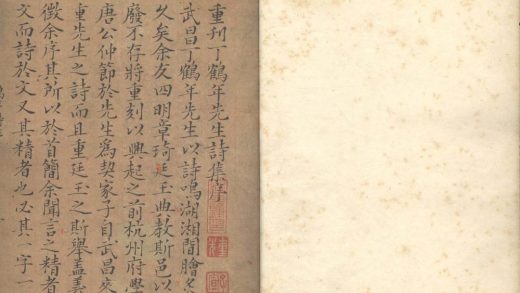 重刊丁鶴年先生詩集序
武昌丁鶴年先生以詩鳴湖湘間膾
久矣余友四明章琦廷玉典敎斯邑以
廢不存將重刻以興起之前杭州府學
唐公仲節於先生為契家子自武昌來
重先生之詩而且重廷玉之斯舉蓋義
徵余序其所以於首簡余聞言之精者
文而詩於文又其精者也必其一字一